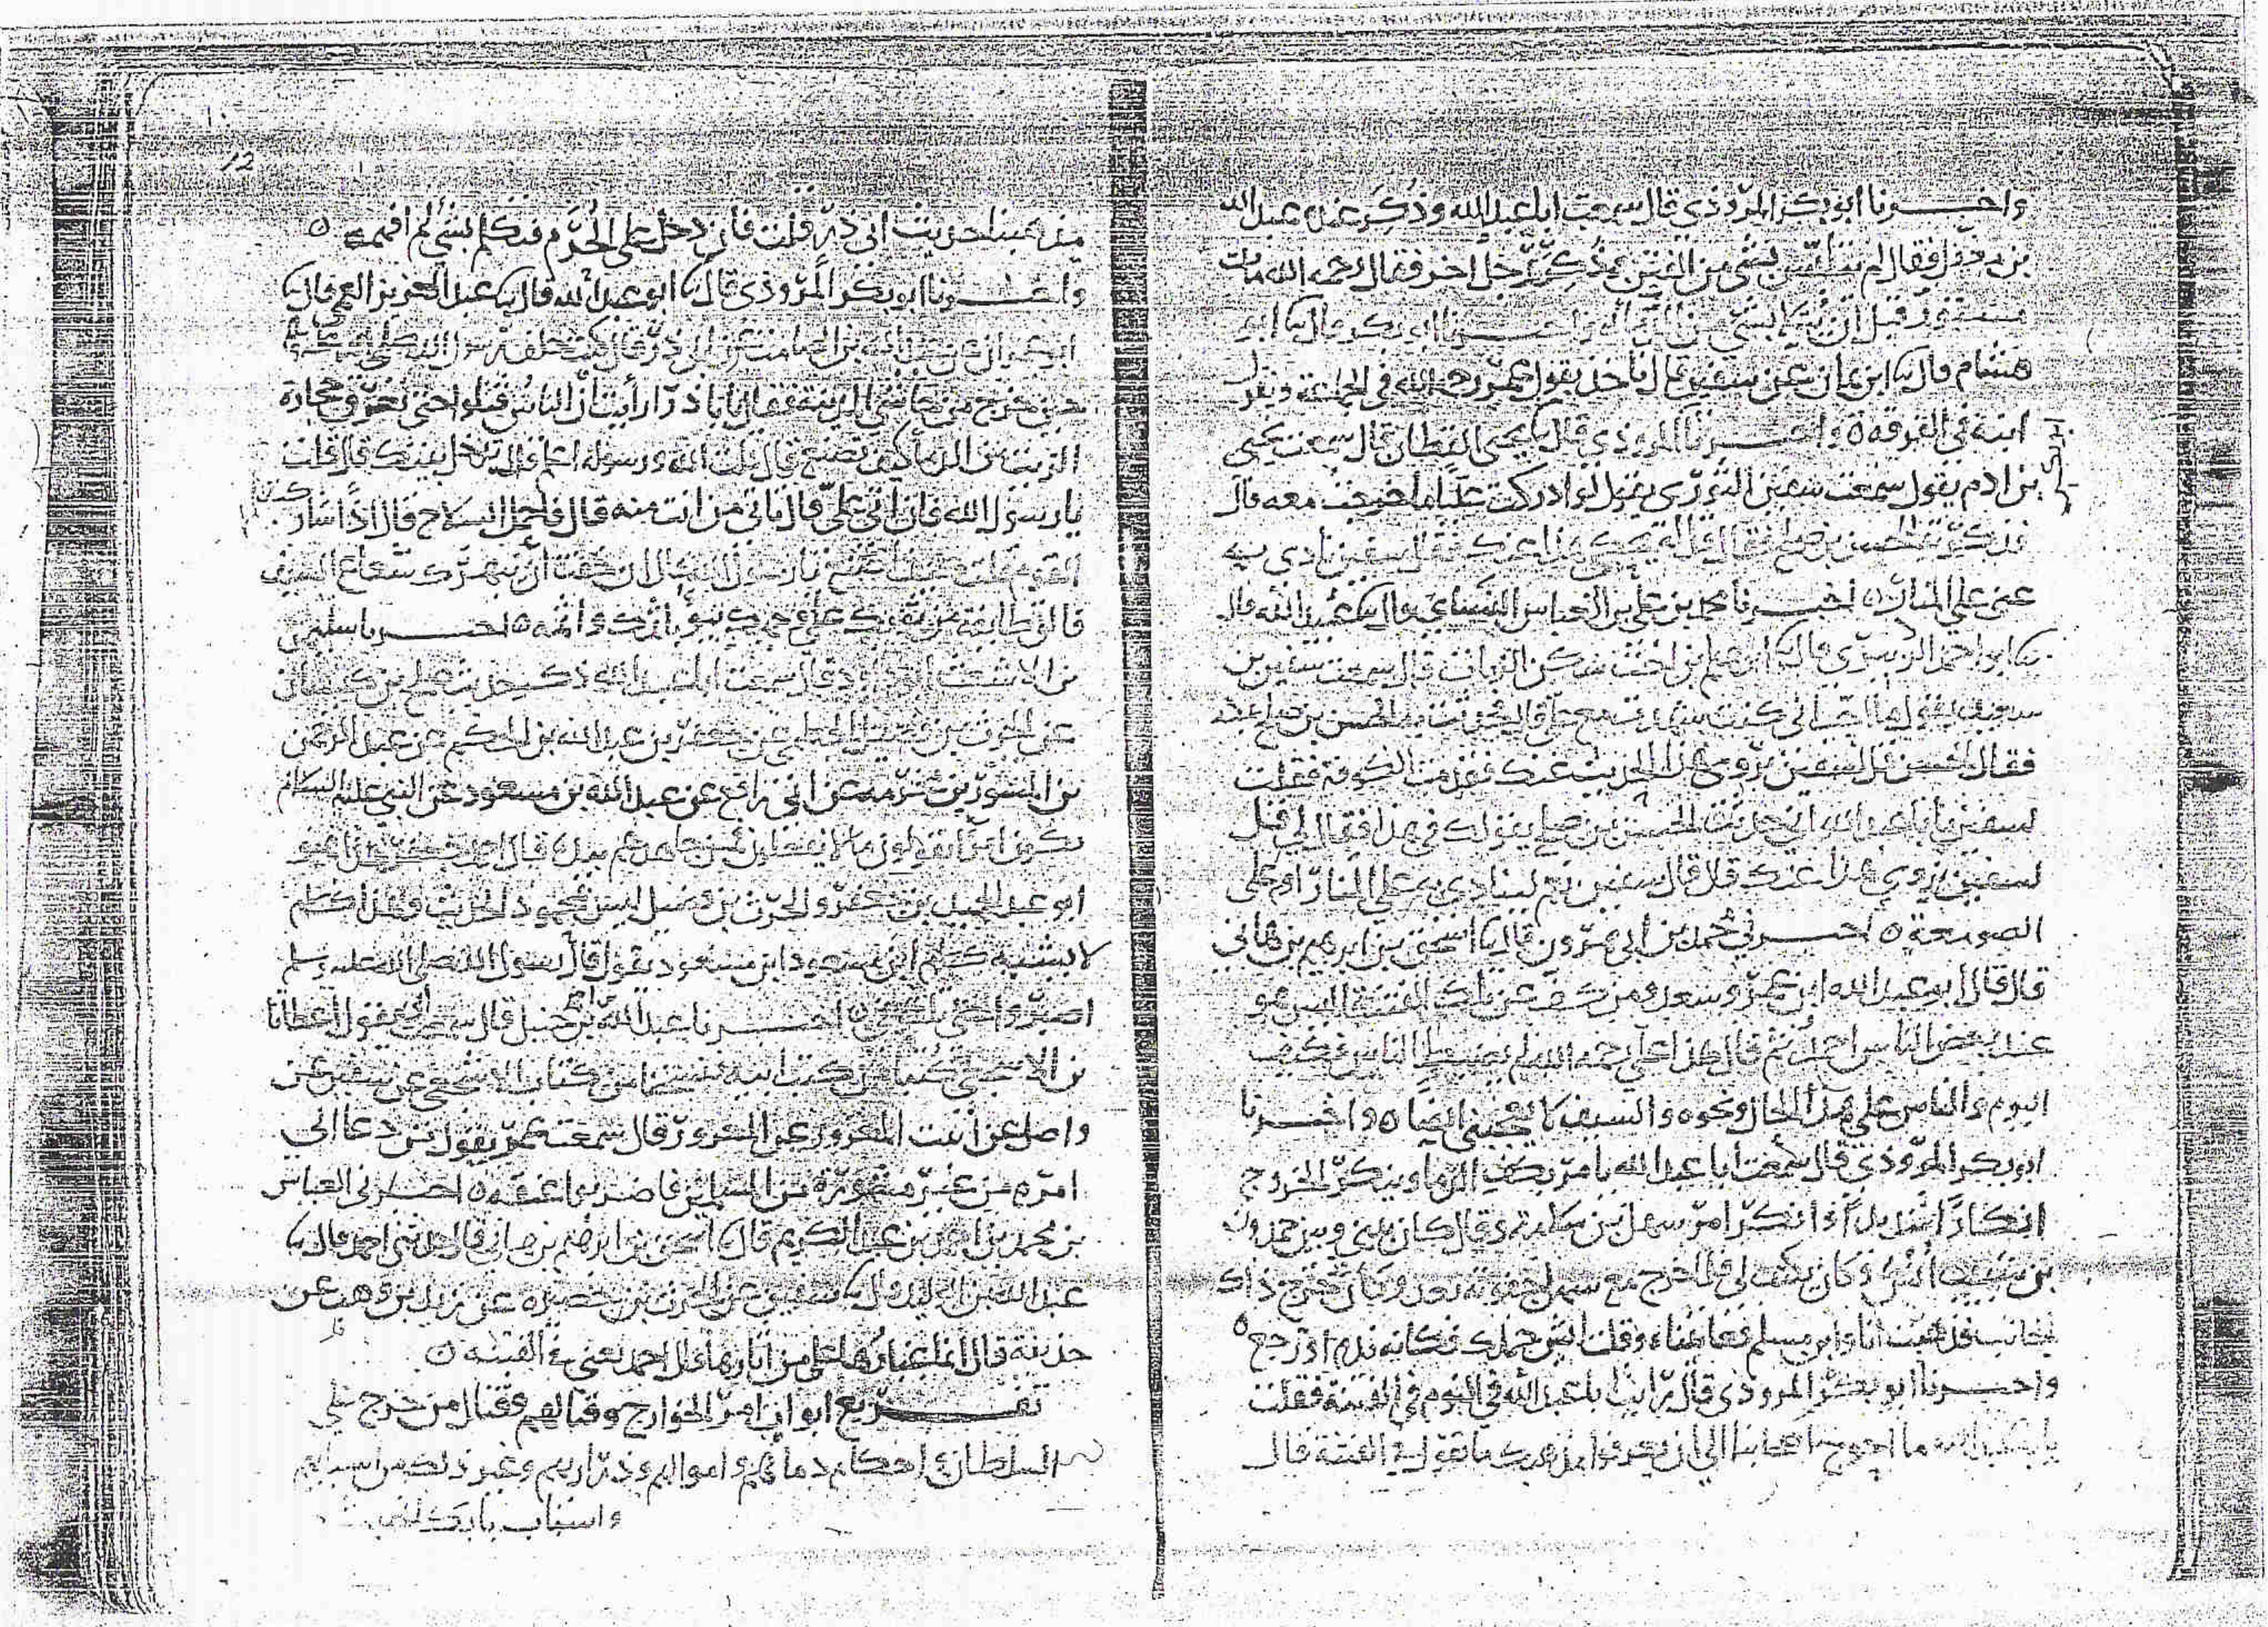 واخبرنا ابو بكر المروذي قال سمعت ابا عبد الله وذكر عنده عبد الله
بن مغفل فقال لم يتلبس بشي من الفتن وذكر رجل اخر فقال رحمه الله مات
مستور قبل ان يبتلى بشي من الدما اخبرنا ابو بكر قال ثنا ابو
هشام قال ثنا ابن يمان عن سفين قال ناخذ بقول عمر رحمه الله في الجماعة وبقول
ابنه في الفرقة ٥ واخبرنا المروذي قال ثنا يحيى القطان قال سمعت يحيى
بن ادم يقول سمعت سفين الثوري يقول لو ادركت عليا ما خرجت معه قال
فذكرته للحسن بن صلح فقال قل له يحكى هذا عنك فقال سفين نادي به
عني على المنار ٥ اخبرنا محمد بن علي بن العباس النسائي قال ثنا عبد الله قال
ثنا ابو احمد الزبيري قال ثنا قال سمعت سفين بن
سعيد يقول ما احب اني كنت شهدت مع علي قال فحدثت به الحسن بن صلح
فقال الحسن قل لسفين نروي هذا الحديث عنك فقدمت الكوفة فقلت
لسفين يا ابا عبد الله اني حدثت الحسن بن صلح بقولك في هذا فقال لي قل
لسفين نروي هذا عنك قال قال سفين نعم لينادي به على المنار او على
الصومعة ٥ اخبرني محمد بن ابي هرون قال ثنا اسحق بن ابرهيم بن هاني
قال قال ابو عبد الله ابن عمر وسعد ومن كف عن تلك الفتنة اليس هو
عند بعض الناس احمد ثم قال هذا علي رحمه الله لم يضبط الناس فكيف
اليوم والناس على هذا الحال ونحوه والسيف لا يعجبني ايضا ٥ واخبرنا
ابو بكر المروذي قال سمعت ابا عبد الله يامر بكف الدما وينكر الخروج
انكارا شديدا وانكر امر سهل بن سلامة وقال كان بيني وبين حمدون
بن شبيب انس وكان يكتب لي فلما خرج مع سهل جفوته بعد وكان خرج ذاك
الجانب فذهبت انا وابن مسلم فعاتبناه وقلت ايش حملك فكانه ندم او رجع ٥
واخبرنا ابو بكر المروذي قال رايت ابا عبد الله في النوم في الفتنة فقلت
يا ابا عبد الله ما احوج اصحابنا الى ان يعرفوا مذهبك ما تقول في الفتنة قال
12
مذهبنا حديث ابي ذر قلت فان دخل على الحرم فتكلم بشي لم افهمه ٥
واخبرنا ابو بكر المروذي قال ثنا ابو عبد الله قال ثنا عبد العزيز العمي قال ثنا
ابو عمران عن عبد الله بن الصامت عن ابي ذر قال كنت خلف رسول الله صلى الله عليه وسلم
حين خرج من المدينة فقال يا ابا ذر ارايت ان الناس قتلوا حتى تغرق حجارة
الزيت من الدما كيف تصنع قال قلت الله ورسوله اعلم قال تدخل بيتك قال قلت
يا رسول الله فان اتى علي قال تاتي من انت منه قال فاحمل السلاح قال اذا شاركت
القوم قلت كيف اصنع يا رسول الله قال ان خفت ان يبهرك شعاع السيف
فالق طايفة من ثوبك على وجهك يبوء باثمك واثمه ٥ اخبرنا سليمن
بن الاشعث ابو داود قال سمعت ابا عبد الله ذكر حديث صلح بن كيسان
عن الحرث بن فضيل الخطمي عن جعفر بن عبد الله بن الحكم عن عبد الرحمن
بن المسور بن مخرمة عن ابي رافع عن عبد الله بن مسعود عن النبي عليه السلام
يكون امرا يقولون ما لا يفعلون فمن جاهدهم بيده قال احمد جعفر هذا هو
ابو عبد الحميد بن جعفر والحرث بن فضيل ليس بمحمود الحديث وهذا كلام
لا يشبه كلام ابن مسعود ابن مسعود يقول قال رسول الله صلى الله عليه وسلم
اصبروا حتى تلقوني ٥ اخبرنا عبد الله بن احمد بن حنبل قال سمعت ابي يقول اعطانا
بن الاشجعي كتبا من كتب ابيه فنسخنا من كتاب الاشجعي عن سفين عن
واصل عن المعرور عن المعرور قال سمعت عمر يقول من دعا الى
امره من غير مشورة من المسلمين فاضربوا عنقه ٥ اخبرني العباس
بن محمد بن احمد بن عبد الكريم قال ثنا اسحق بن ابرهيم بن هاني قال حدثني احمد قال ثنا
عبد الله بن الوليد قال ثنا سفين عن الحرث بن حصيرة عن زيد بن وهب عن
حذيفة قال قال احمد يعني في الفتنة ٥
تفريع ابواب امر الخوارج وقتالهم وقتال من خرج على
السلطان في احكام دمائهم واموالهم وذراريهم وغير ذلك من اسبابهم
واسباب بابك